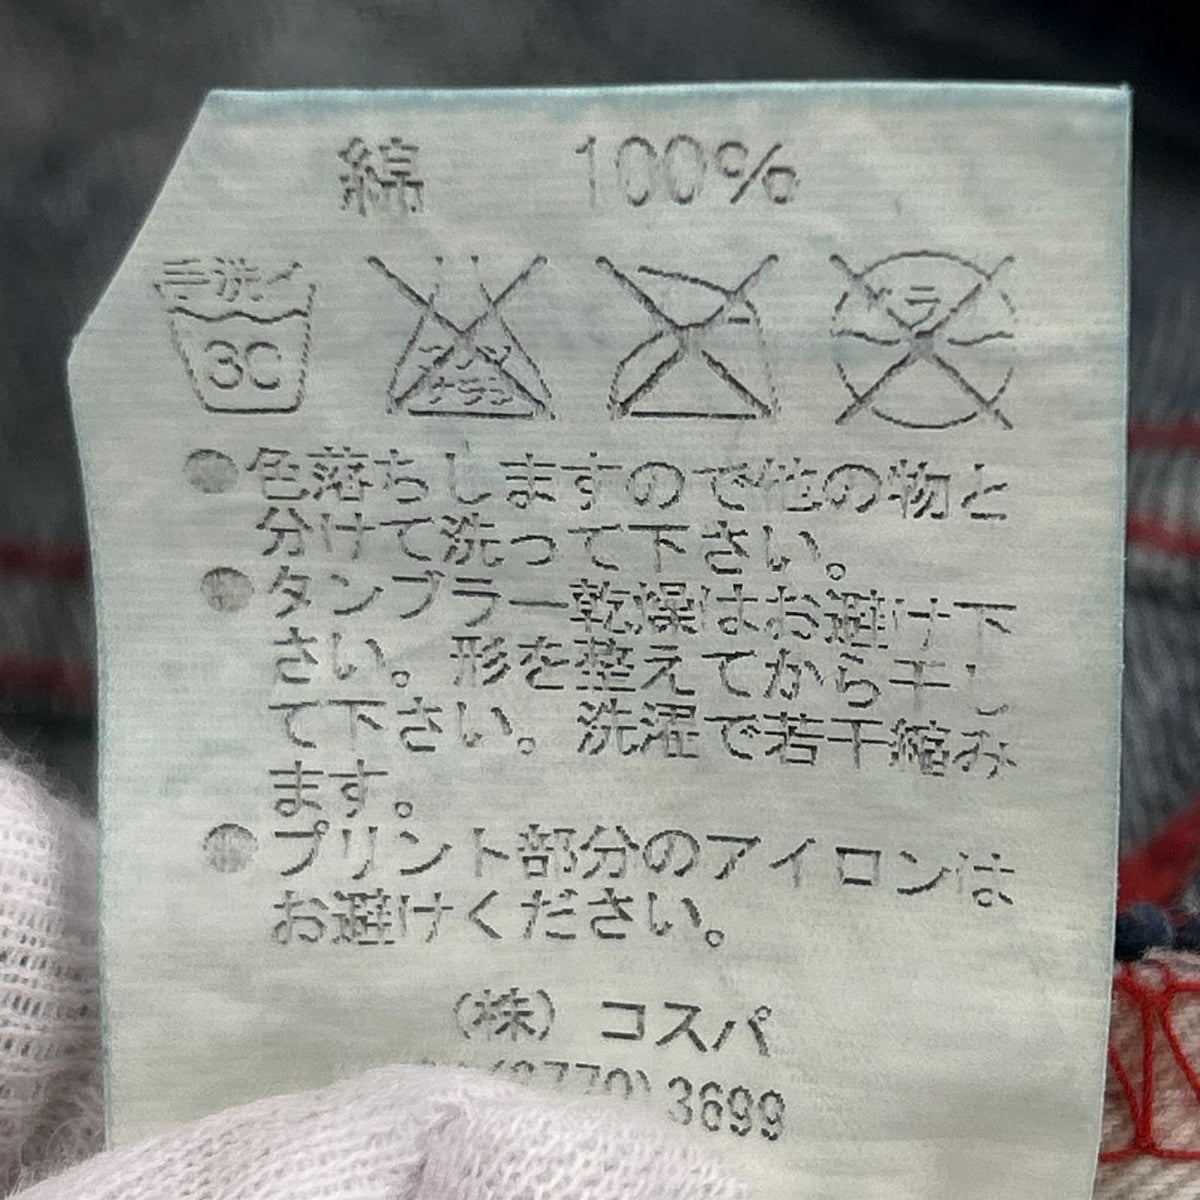 綿 100%
手洗イ
30
エンソ
サラシ
ドライ
●色落ちしますので他の物と
分けて洗って下さい。
●タンブラー乾燥はお避け下
さい。形を整えてから干し
て下さい。洗濯で若干縮み
ます。
●プリント部分のアイロンは
お避けください。
(株) コスパ
(3770) 3699